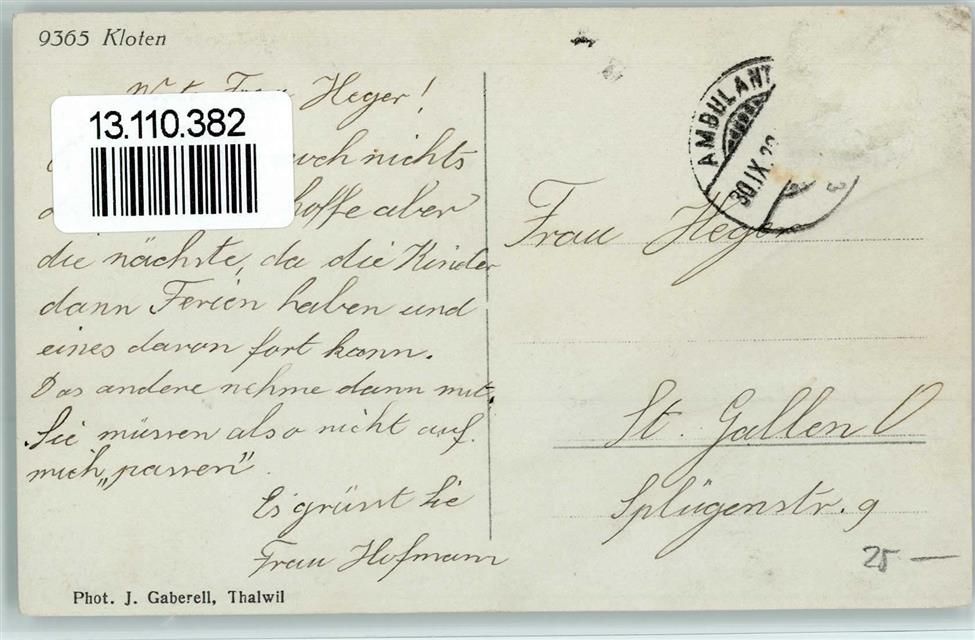 9365 Kloten
Frau Heger!
13.110.382
noch nichts
hoffe aber
die nächste, da die Kinder
dann Ferien haben und
eines davon fort kann.
Das andere nehme dann mit.
Sie müssen also nicht auf
mich „passen".
Es grüsst Sie
Frau Hofmann
Phot. J. Gaberell, Thalwil
AMBULANT
30.IX.
Frau Heger
St. Gallen O
Splügenstr. 9
25 —